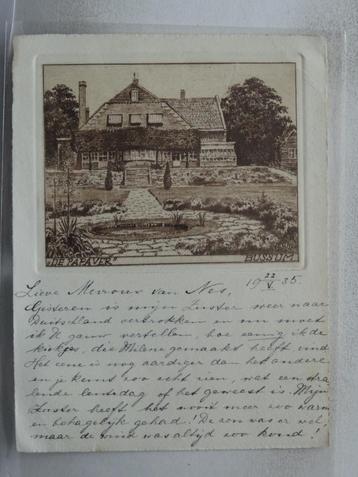 "DE PAPAVER"
BUSSUM
19 22/V 35.
Lieve Mevrouw van Nes,
Gisteren is mijn Zuster weer naar
Duitschland vertrokken en nu moet
ik U gauw vertellen, hoe eenig ik de
kiekjes, die Milene gemaakt heeft vind
Het eene is nog aardiger dan het andere
en je kunt zoo echt zien, wat een stra
lende lentedag of het geweest is. Mijn
Zuster heeft het nooit meer zoo warm
en behagelijk gehad! De zon was er wel,
maar de wind was altijd zoo koud!